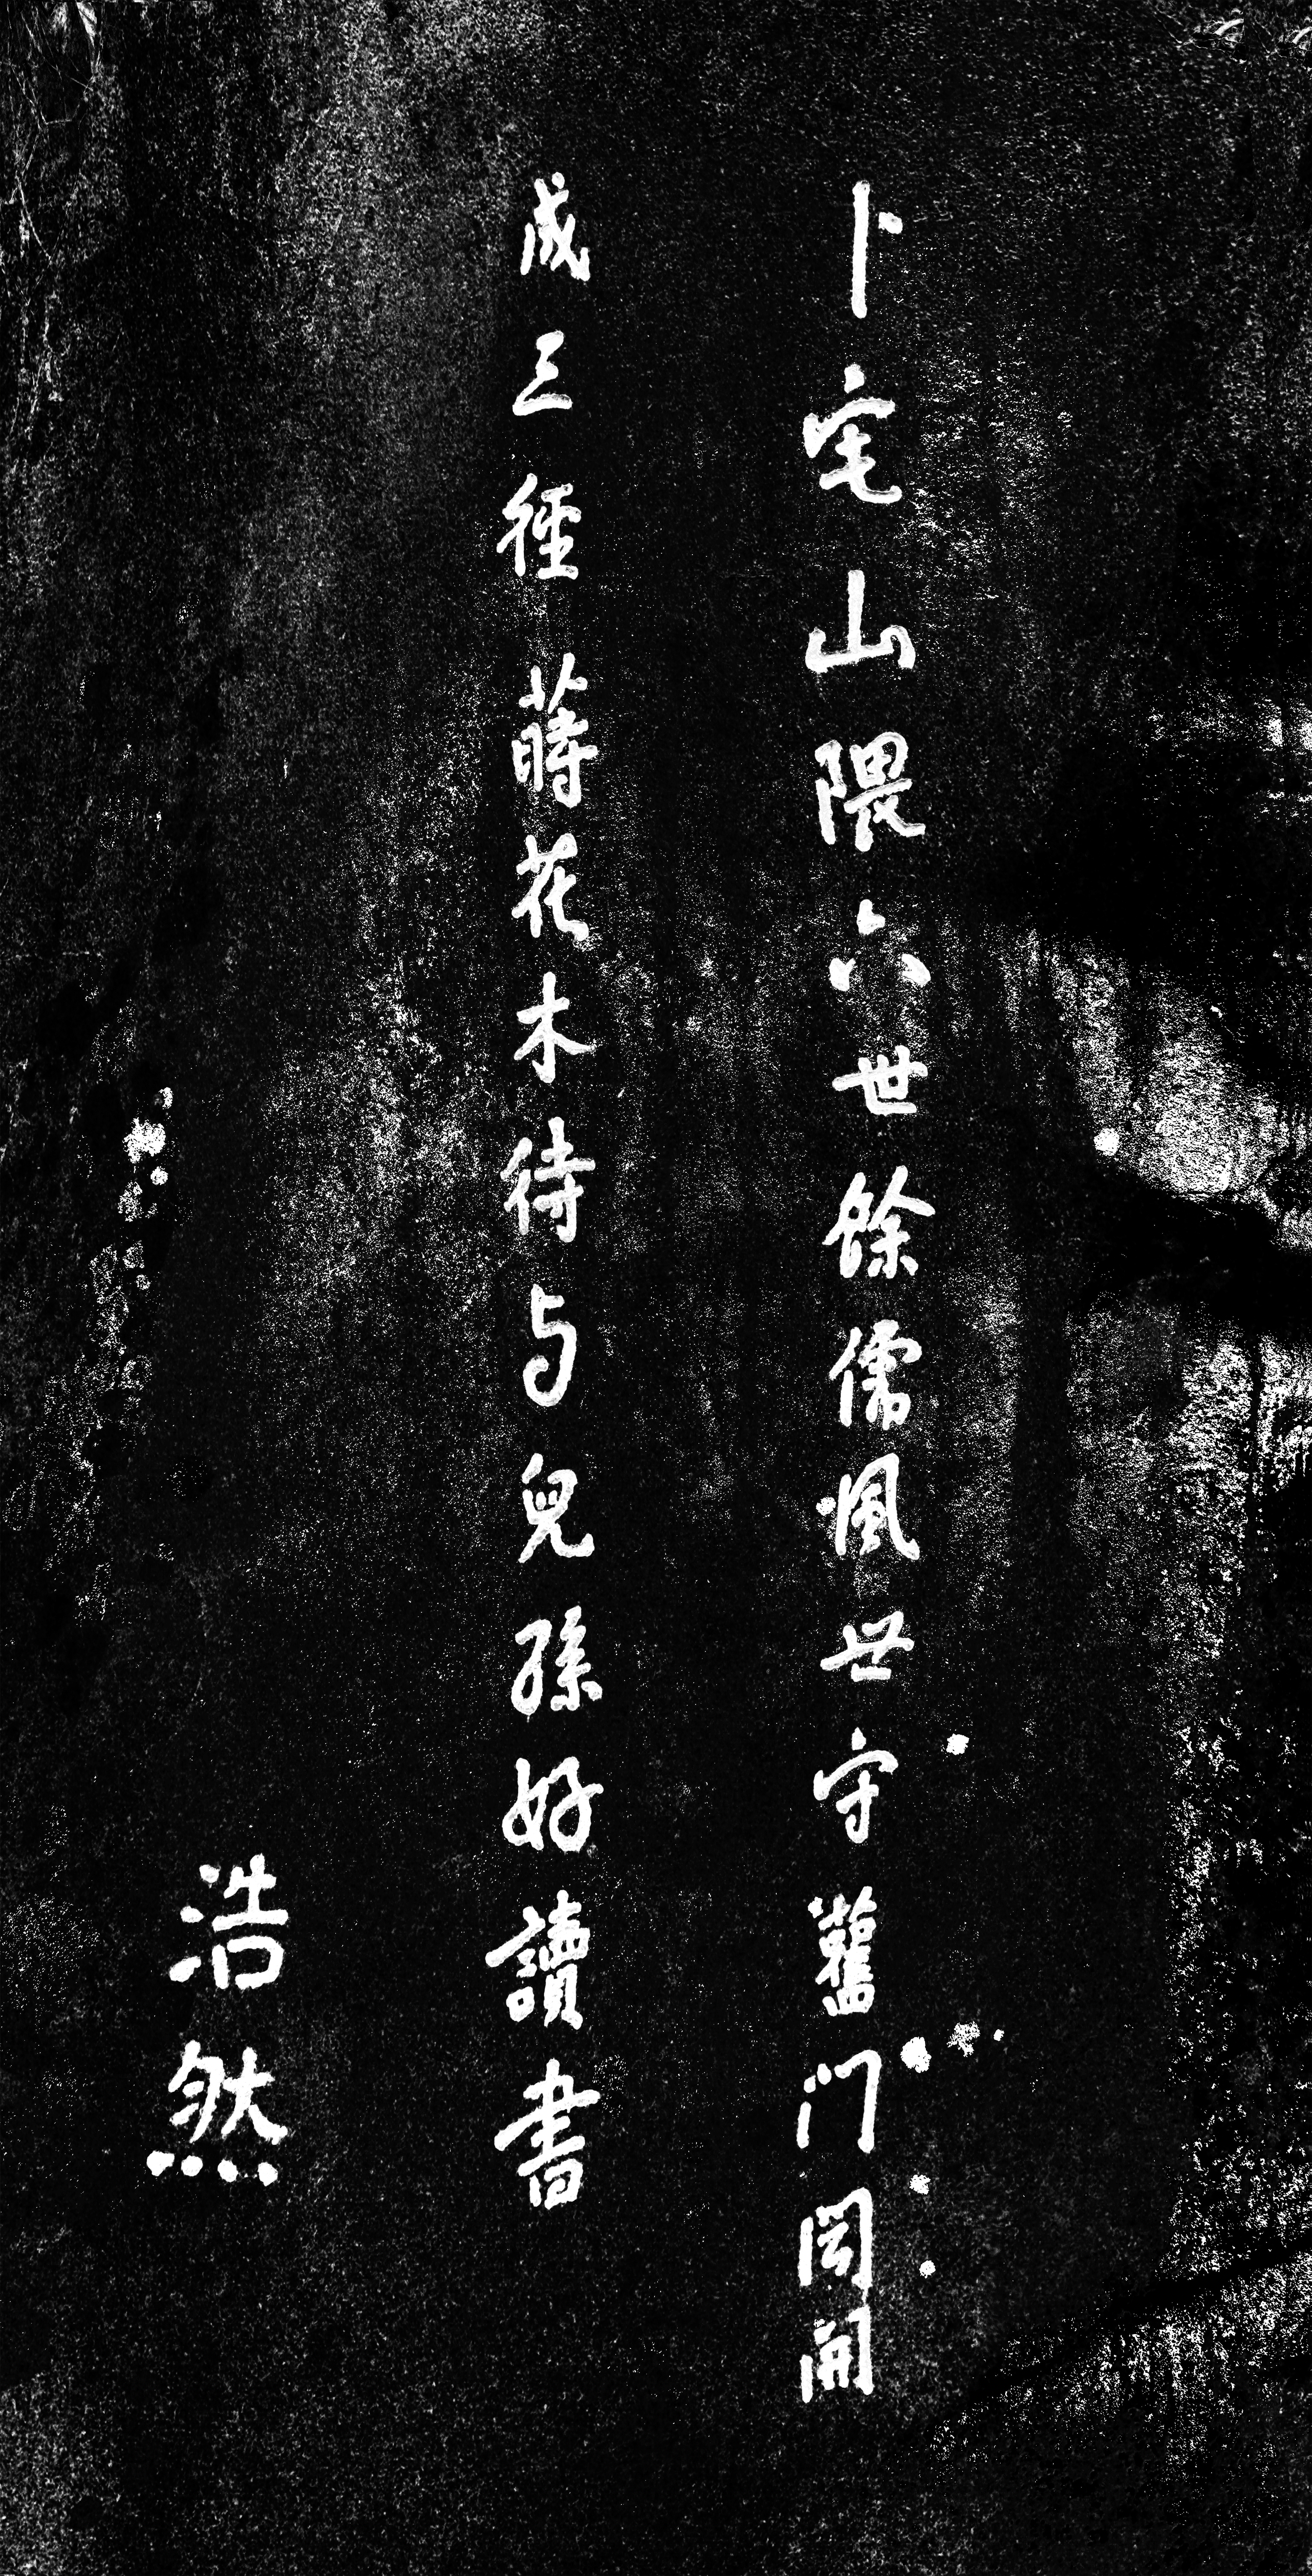 卜宅山隈六世餘儒風世守舊门閎開
成三徑蒔花木待与兒孫好讀書
浩然